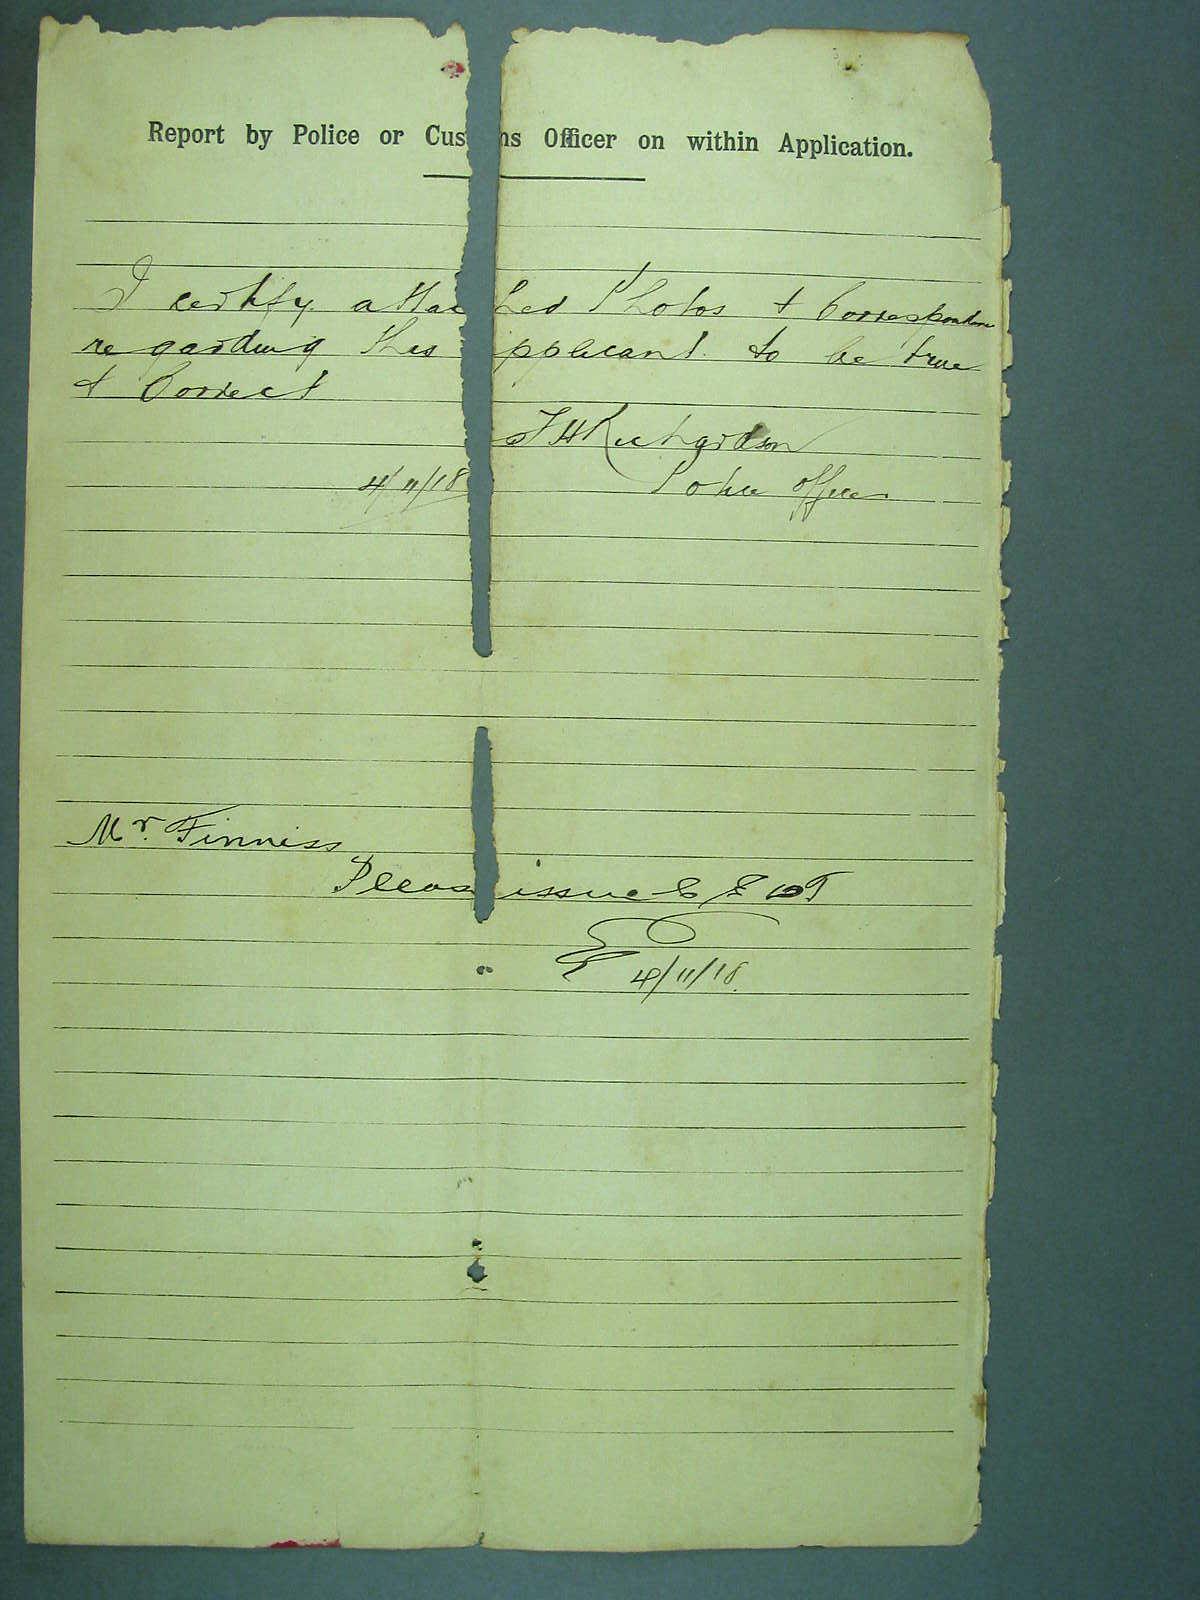 Report by Police or Cus ns Officer on within Application.
I certify attac hed Photos & Correspondence
regarding this pplicant to be true
& Correct
F H Richardson
4/11/18 Police Officer
Mr. Finniss
Pleas issue C E D T
4/11/18.